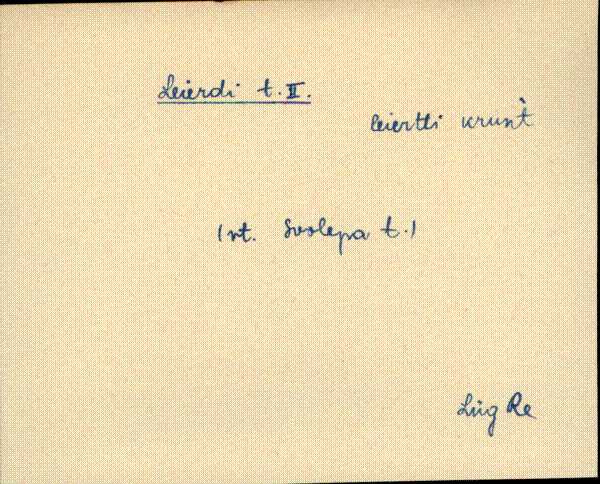 Leierdi t. II.
leiertti krunt̀
(vt. Soolepa t.)
Lüg Re